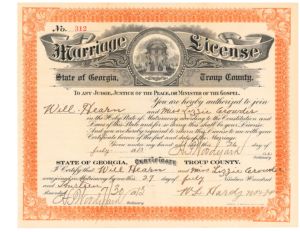 No. 312
Marriage License
State of Georgia, Troup County.
To any Judge, Justice of the Peace, or Minister of the Gospel.
You are hereby authorized to join
Will Hearn and Miss Lizzie Crowder
in the Holy State of Matrimony according to the Constitution and
Laws of this State and for so doing this shall be your License.
And you are hereby required to return this License to me with your
Certificate hereon of the fact and date of the Marriage.
Given under my hand and seal this 26 day
July 1913
STATE OF GEORGIA, Certificate TROUP COUNTY.
I Certify that Will Hearn and Miss Lizzie Crowder
were joined in Matrimony by me this 27 day of July Nineteen Hundred
and thirteen
7/30/1913
W. L. Hardy